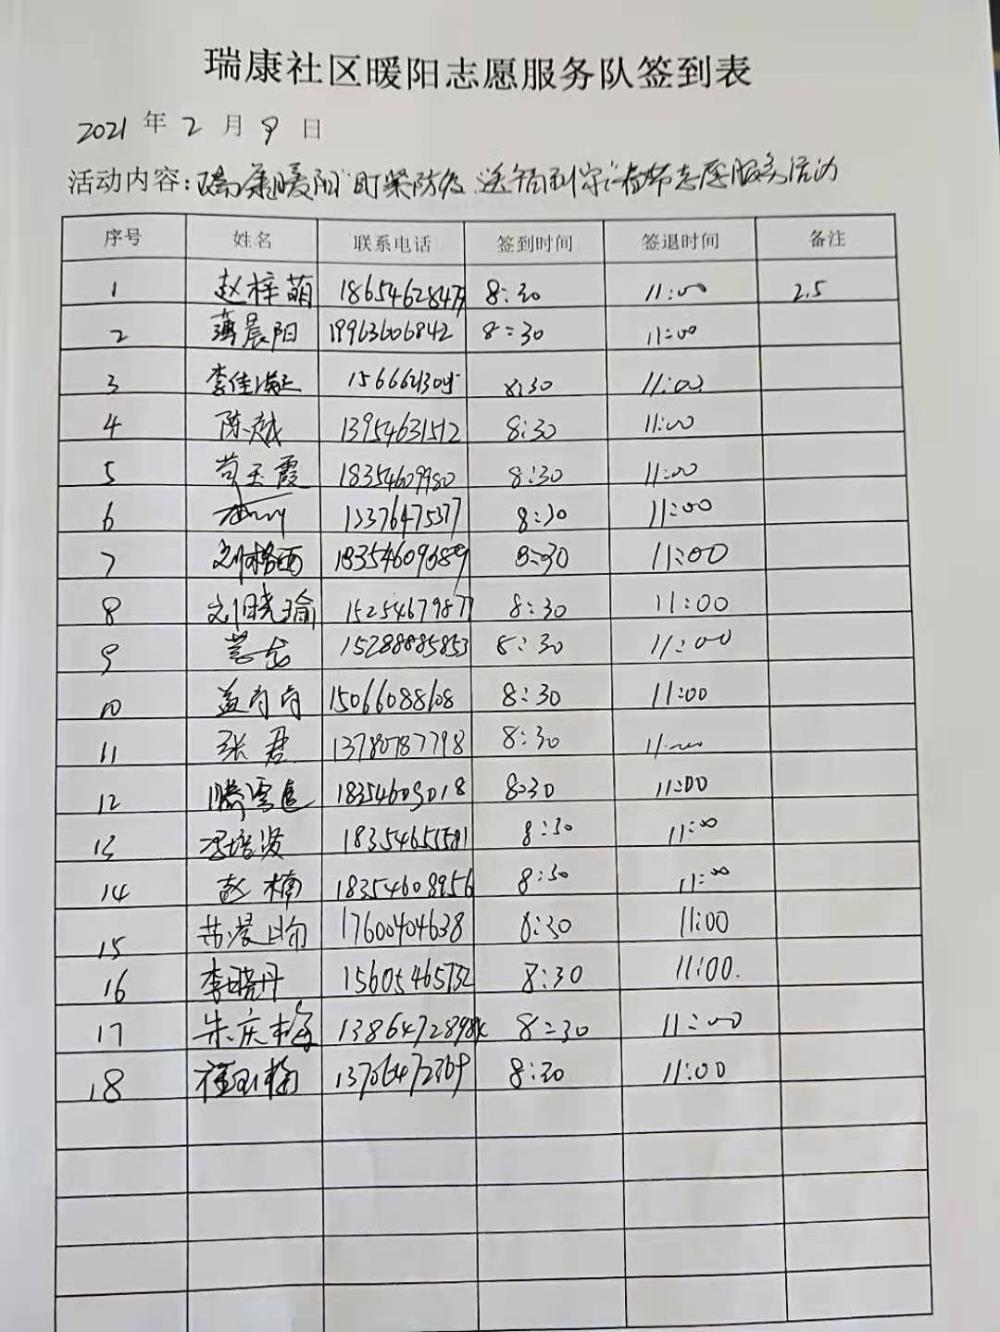 瑞康社区暖阳志愿服务队签到表
2021 年 2 月 9 日
活动内容：瑞康暖阳 盯紧防疫 送福到家 春节志愿服务活动
序号 姓名 联系电话 签到时间 签退时间 备注
1 赵梓萌 186546284 8:30 11:00 2.5
2 薄晨阳 19963606842 8:30 11:00
3 李佳 8:30 11:00
4 陈越 13954631512 8:30 11:00
5 苟玉霞 18354609980 8:30 11:00
6 13376475377 8:30 11:00
7 刘格西 18354609689 8:30 11:00
8 刘晓瑜 15254679877 8:30 11:00
9 15288885853 8:30 11:00
10 盖肖肖 15066088608 8:30 11:00
11 张君 13780787798 8:30 11:00
12 滕雪 18354603018 8:30 11:00
13 冯培贤 8:30 11:00
14 赵楠 18354608956 8:30 11:00
15 17600404638 8:30 11:00
16 李晓丹 15605465732 8:30 11:00.
17 朱庆梅 8:30 11:00
18 13706472369 8:30 11:00